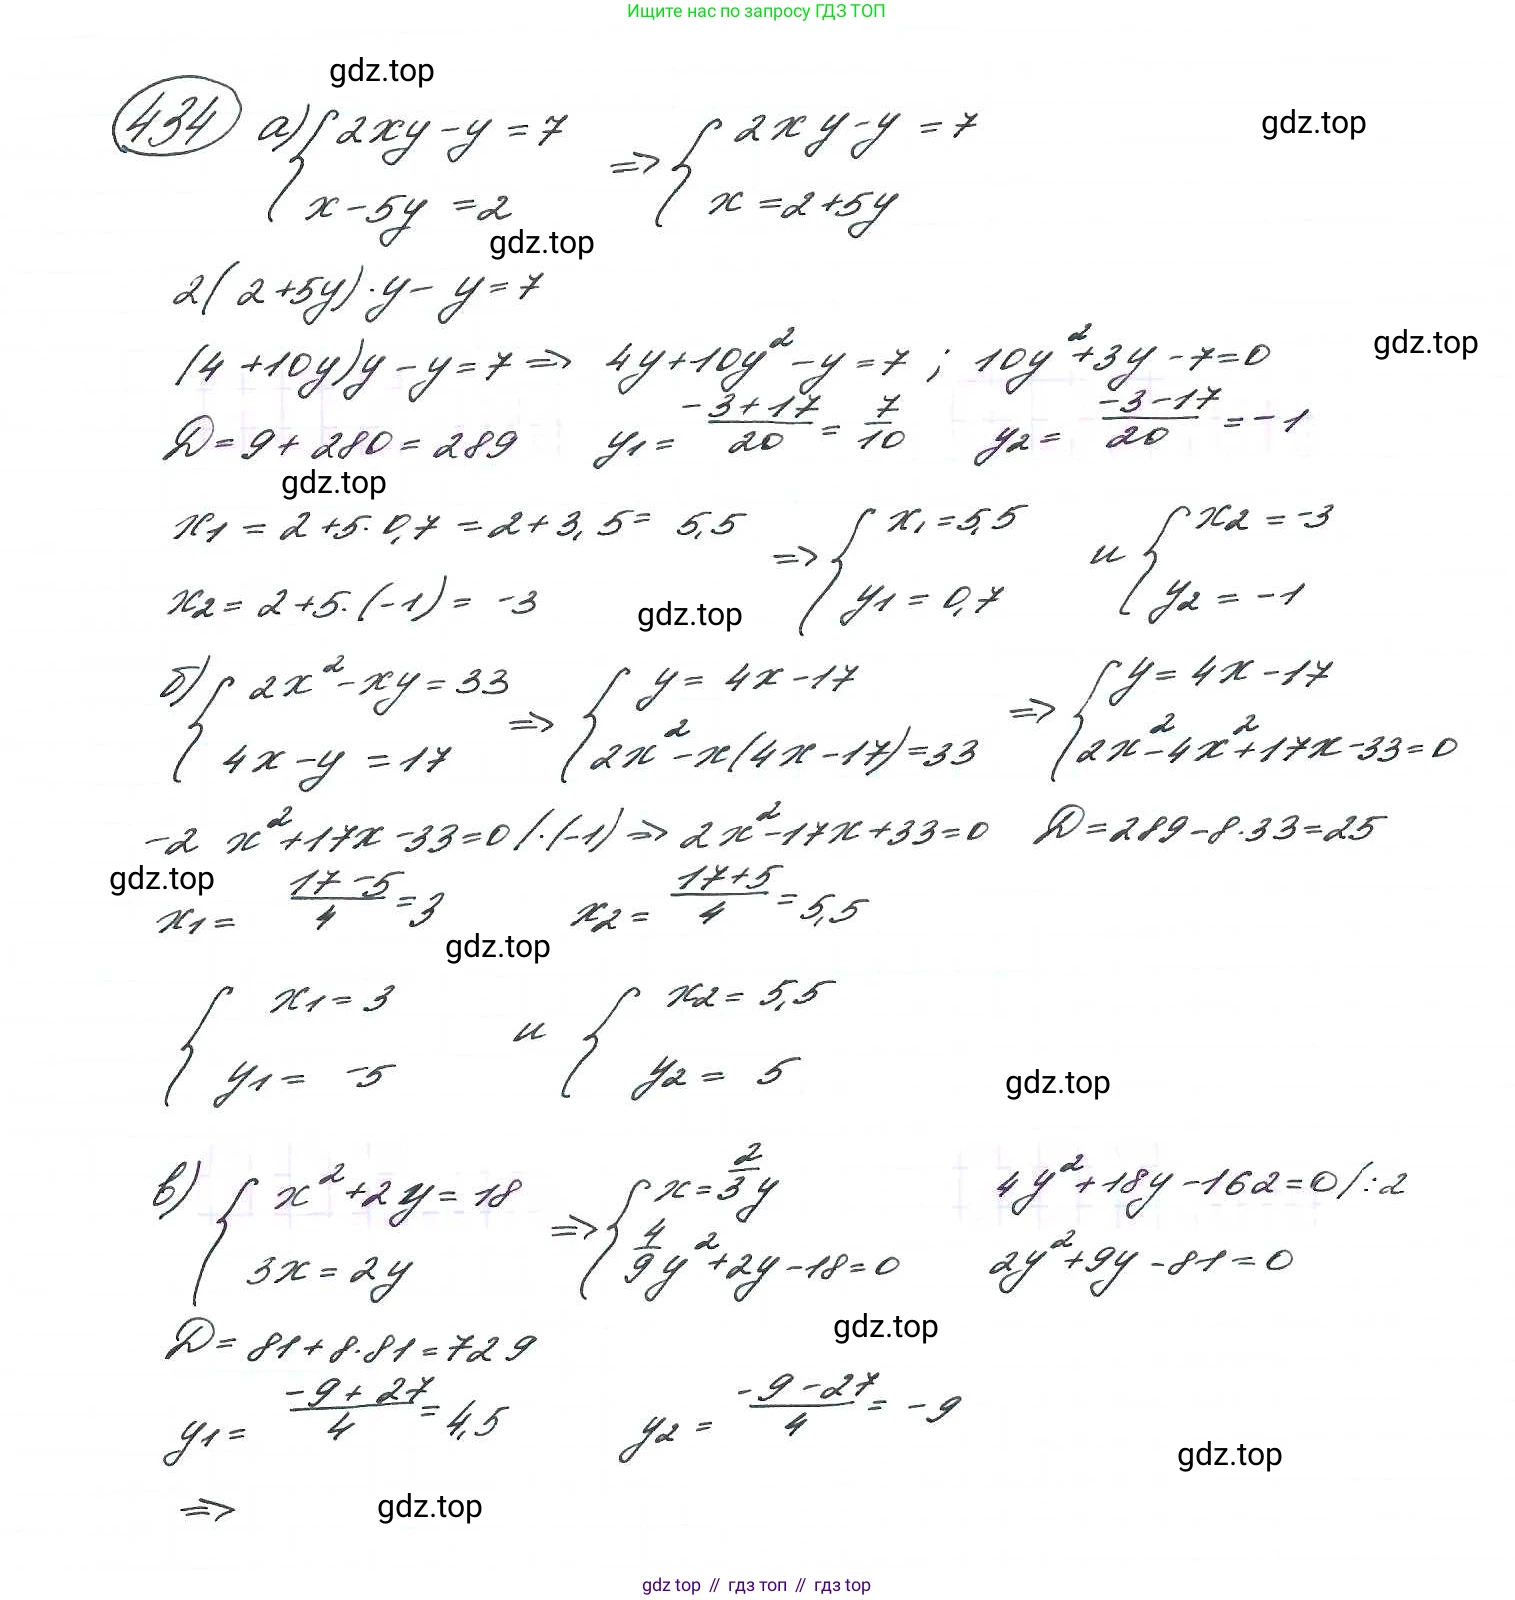 Ищите нас по запросу ГДЗ ТОП
gdz.top
434 а) { 2xy - y = 7 => { 2xy - y = 7
gdz.top
x - 5y = 2 x = 2 + 5y
gdz.top
2(2+5y)·y - y = 7
(4+10y)y - y = 7 => 4y + 10y² - y = 7 ; 10y² + 3y - 7 = 0
gdz.top
D = 9 + 280 = 289 y1 = (-3+17)/20 = 7/10 y2 = (-3-17)/20 = -1
gdz.top
x1 = 2 + 5·0,7 = 2 + 3,5 = 5,5 => { x1 = 5,5 и { x2 = -3
x2 = 2 + 5·(-1) = -3 y1 = 0,7 y2 = -1
gdz.top
б) { 2x² - xy = 33 => { y = 4x - 17 => { y = 4x - 17
4x - y = 17 2x² - x(4x - 17) = 33 2x² - 4x² + 17x - 33 = 0
-2x² + 17x - 33 = 0 |·(-1) => 2x² - 17x + 33 = 0 D = 289 - 8·33 = 25
gdz.top
x1 = (17-5)/4 = 3 x2 = (17+5)/4 = 5,5
gdz.top
{ x1 = 3 и { x2 = 5,5
y1 = -5 y2 = 5
gdz.top
в) { x² + 2y = 18 => { x = 2/3 y 4y² + 18y - 162 = 0 |:2
3x = 2y 4/9 y² + 2y - 18 = 0 2y² + 9y - 81 = 0
gdz.top
D = 81 + 8·81 = 729
y1 = (-9+27)/4 = 4,5 y2 = (-9-27)/4 = -9
gdz.top
=>
gdz.top
gdz top // гдз топ // гдз top